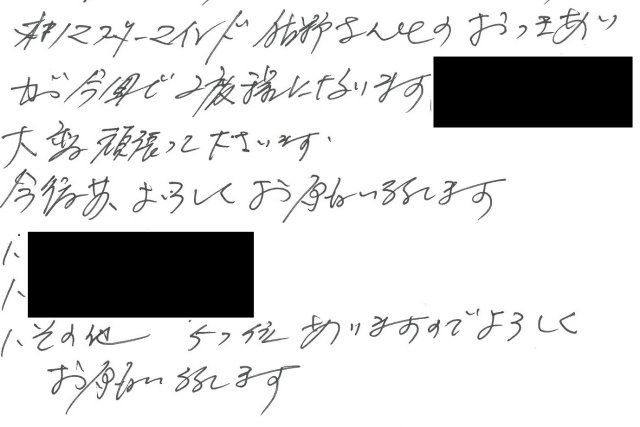 ㈱マスターマインド 佐野さんとのおつきあい
が今回で2度様になります
大変頑張って下さいます.
今後共、よろしくお願い致します
1、
1、
1、その他 5つ位ありますのでよろしく
お願い致します